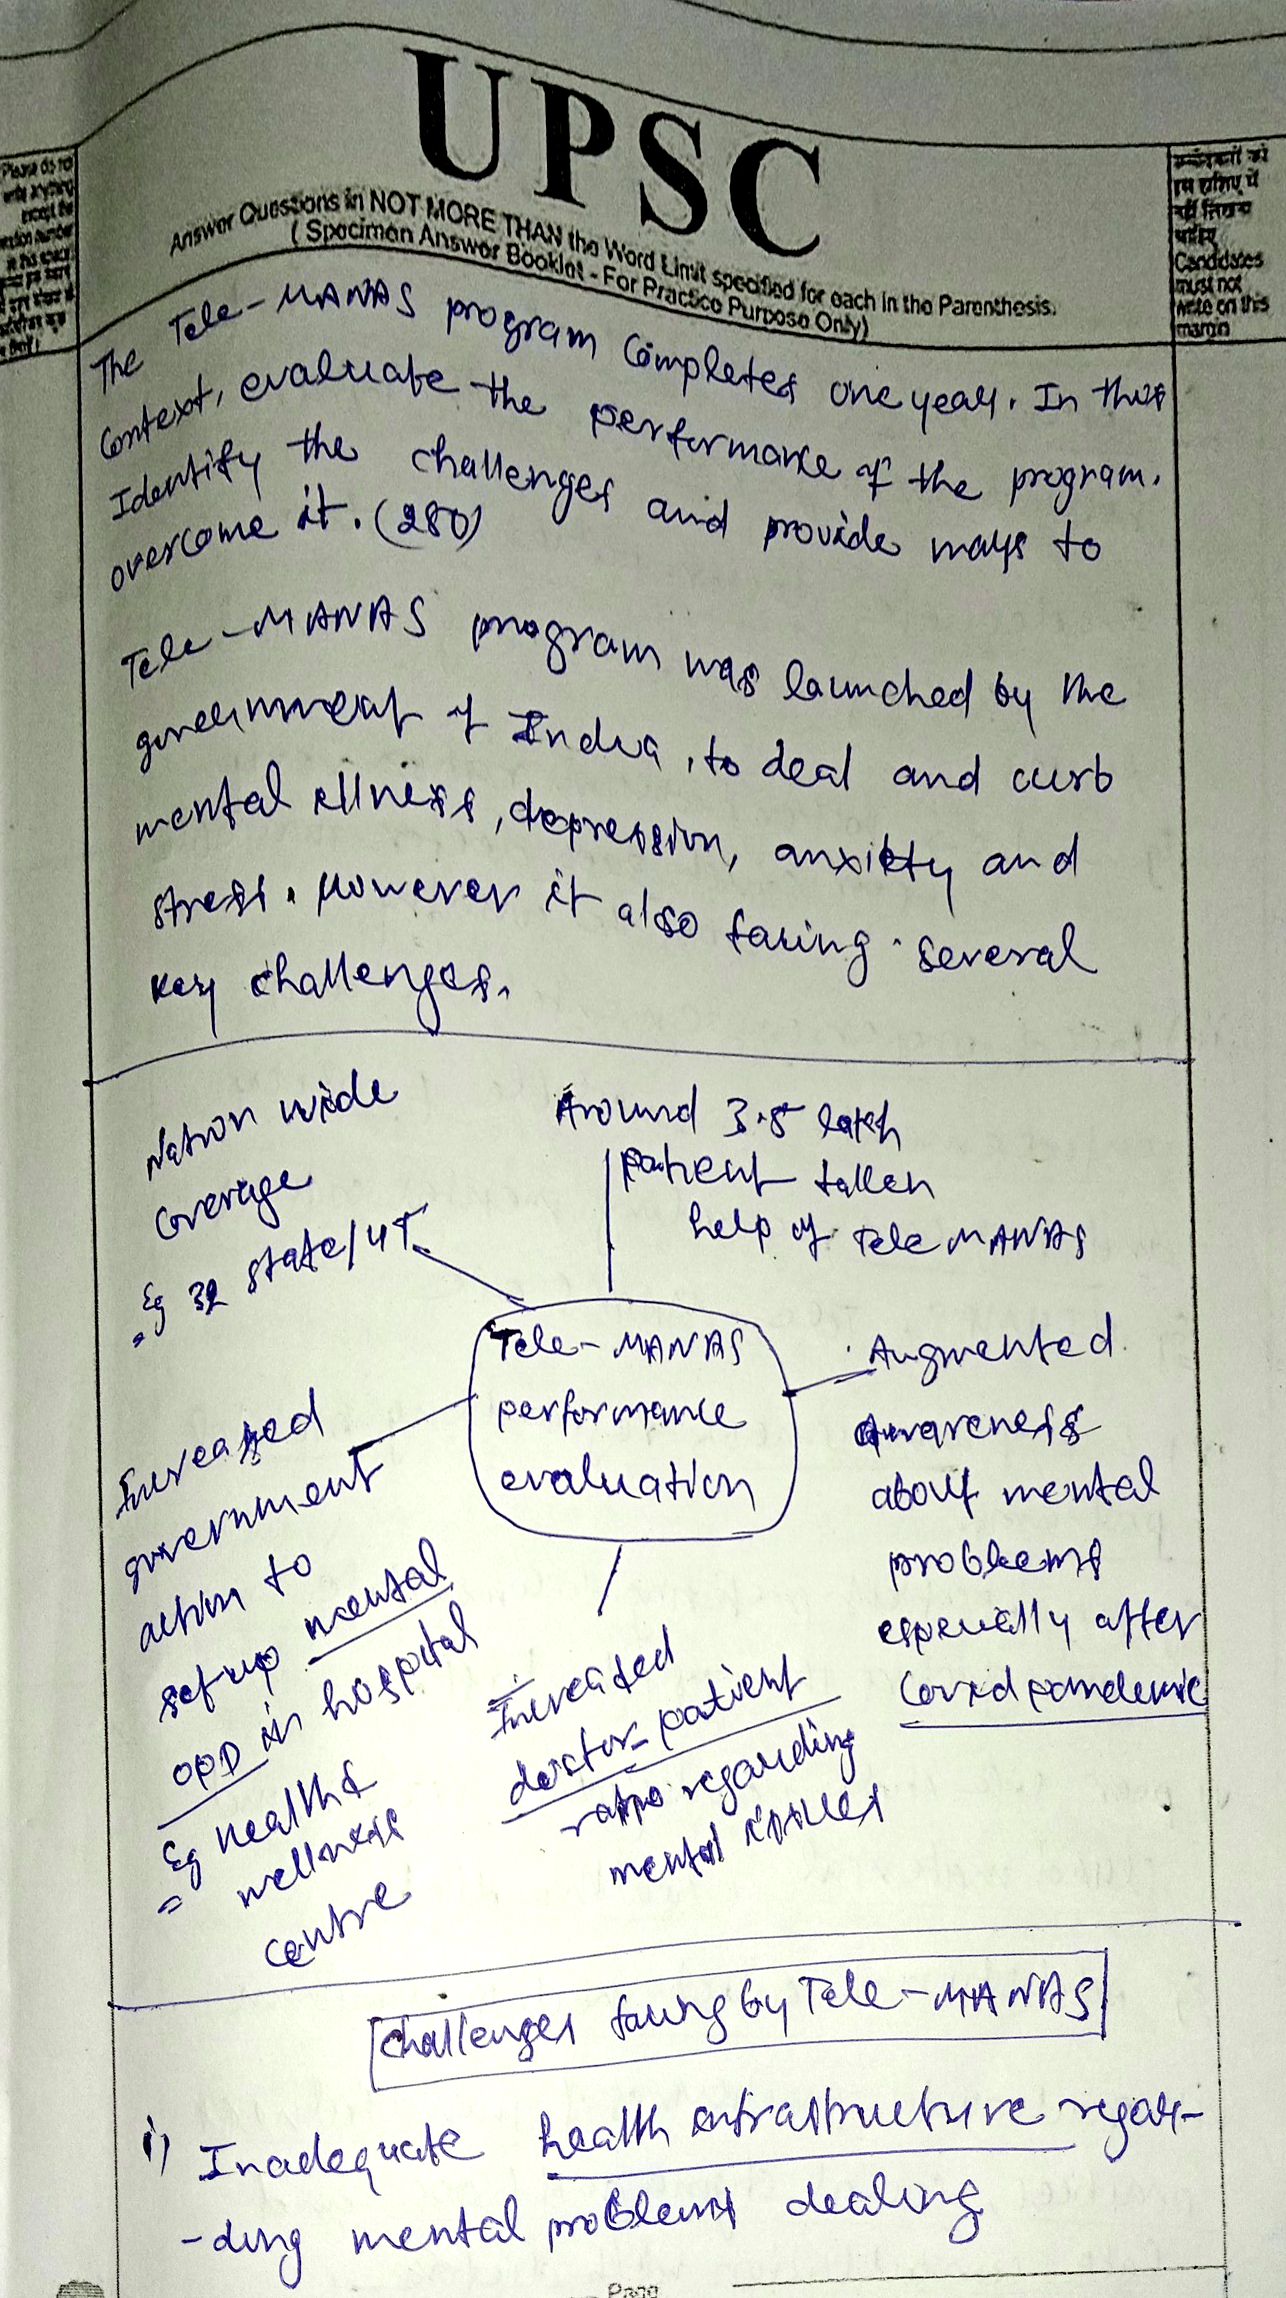 UPSC
Answer Questions in NOT MORE THAN the Word Limit specified for each in the Parenthesis.
( Specimen Answer Booklet - For Practice Purpose Only)
Please do not
write anything
except the
question number
in this space
Candidates
must not
write on this
margin
The Tele-MANAS program completes one year. In this
context, evaluate the performance of the program.
Identify the challenges and provide ways to
overcome it. (250)
Tele-MANAS program was launched by the
government of India, to deal and curb
mental illness, depression, anxiety and
stress. However it also facing several
key challenges.
Nation wide
coverage
Eg 32 state/UT
Around 3.5 lakh
patient taken
help of Tele MANAS
Tele-MANAS
performance
evaluation
Augmented
awareness
about mental
problems
especially after
Covid pandemic
Increased
government
action to
set up mental
OPD in hospital
Eg Health &
wellness
centre
Increased
doctor-patient
ratio regarding
mental issues
Challenges facing by Tele-MANAS
i) Inadequate health infrastructure regar-
-ding mental problems dealing
Page